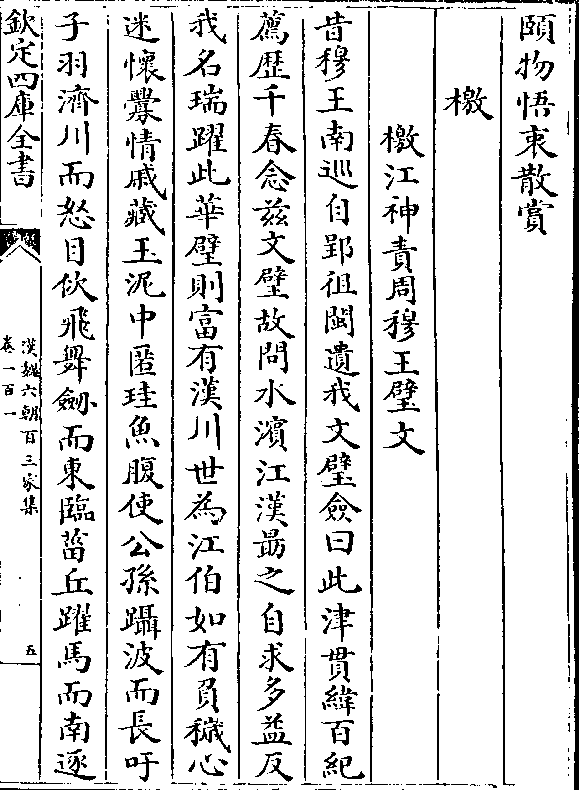 頤物悟衷散賞
檄
檄江神責周穆王璧文
昔穆王南巡自郢徂閩遺我文璧僉曰此津貫緯百紀
薦歴千春念兹文璧故問水濱江漢朂之自求多益反
我名瑞躍此華璧則富有漢川世為江伯如有負穢心
迷懷釁情戚藏玉泥中匿珪魚腹使公孫躡波而長吁
子羽濟川而怒目佽飛舞劔而東臨菑丘躍馬而南逐
欽定四庫全書
漢魏六朝百三家集
卷一百一
五